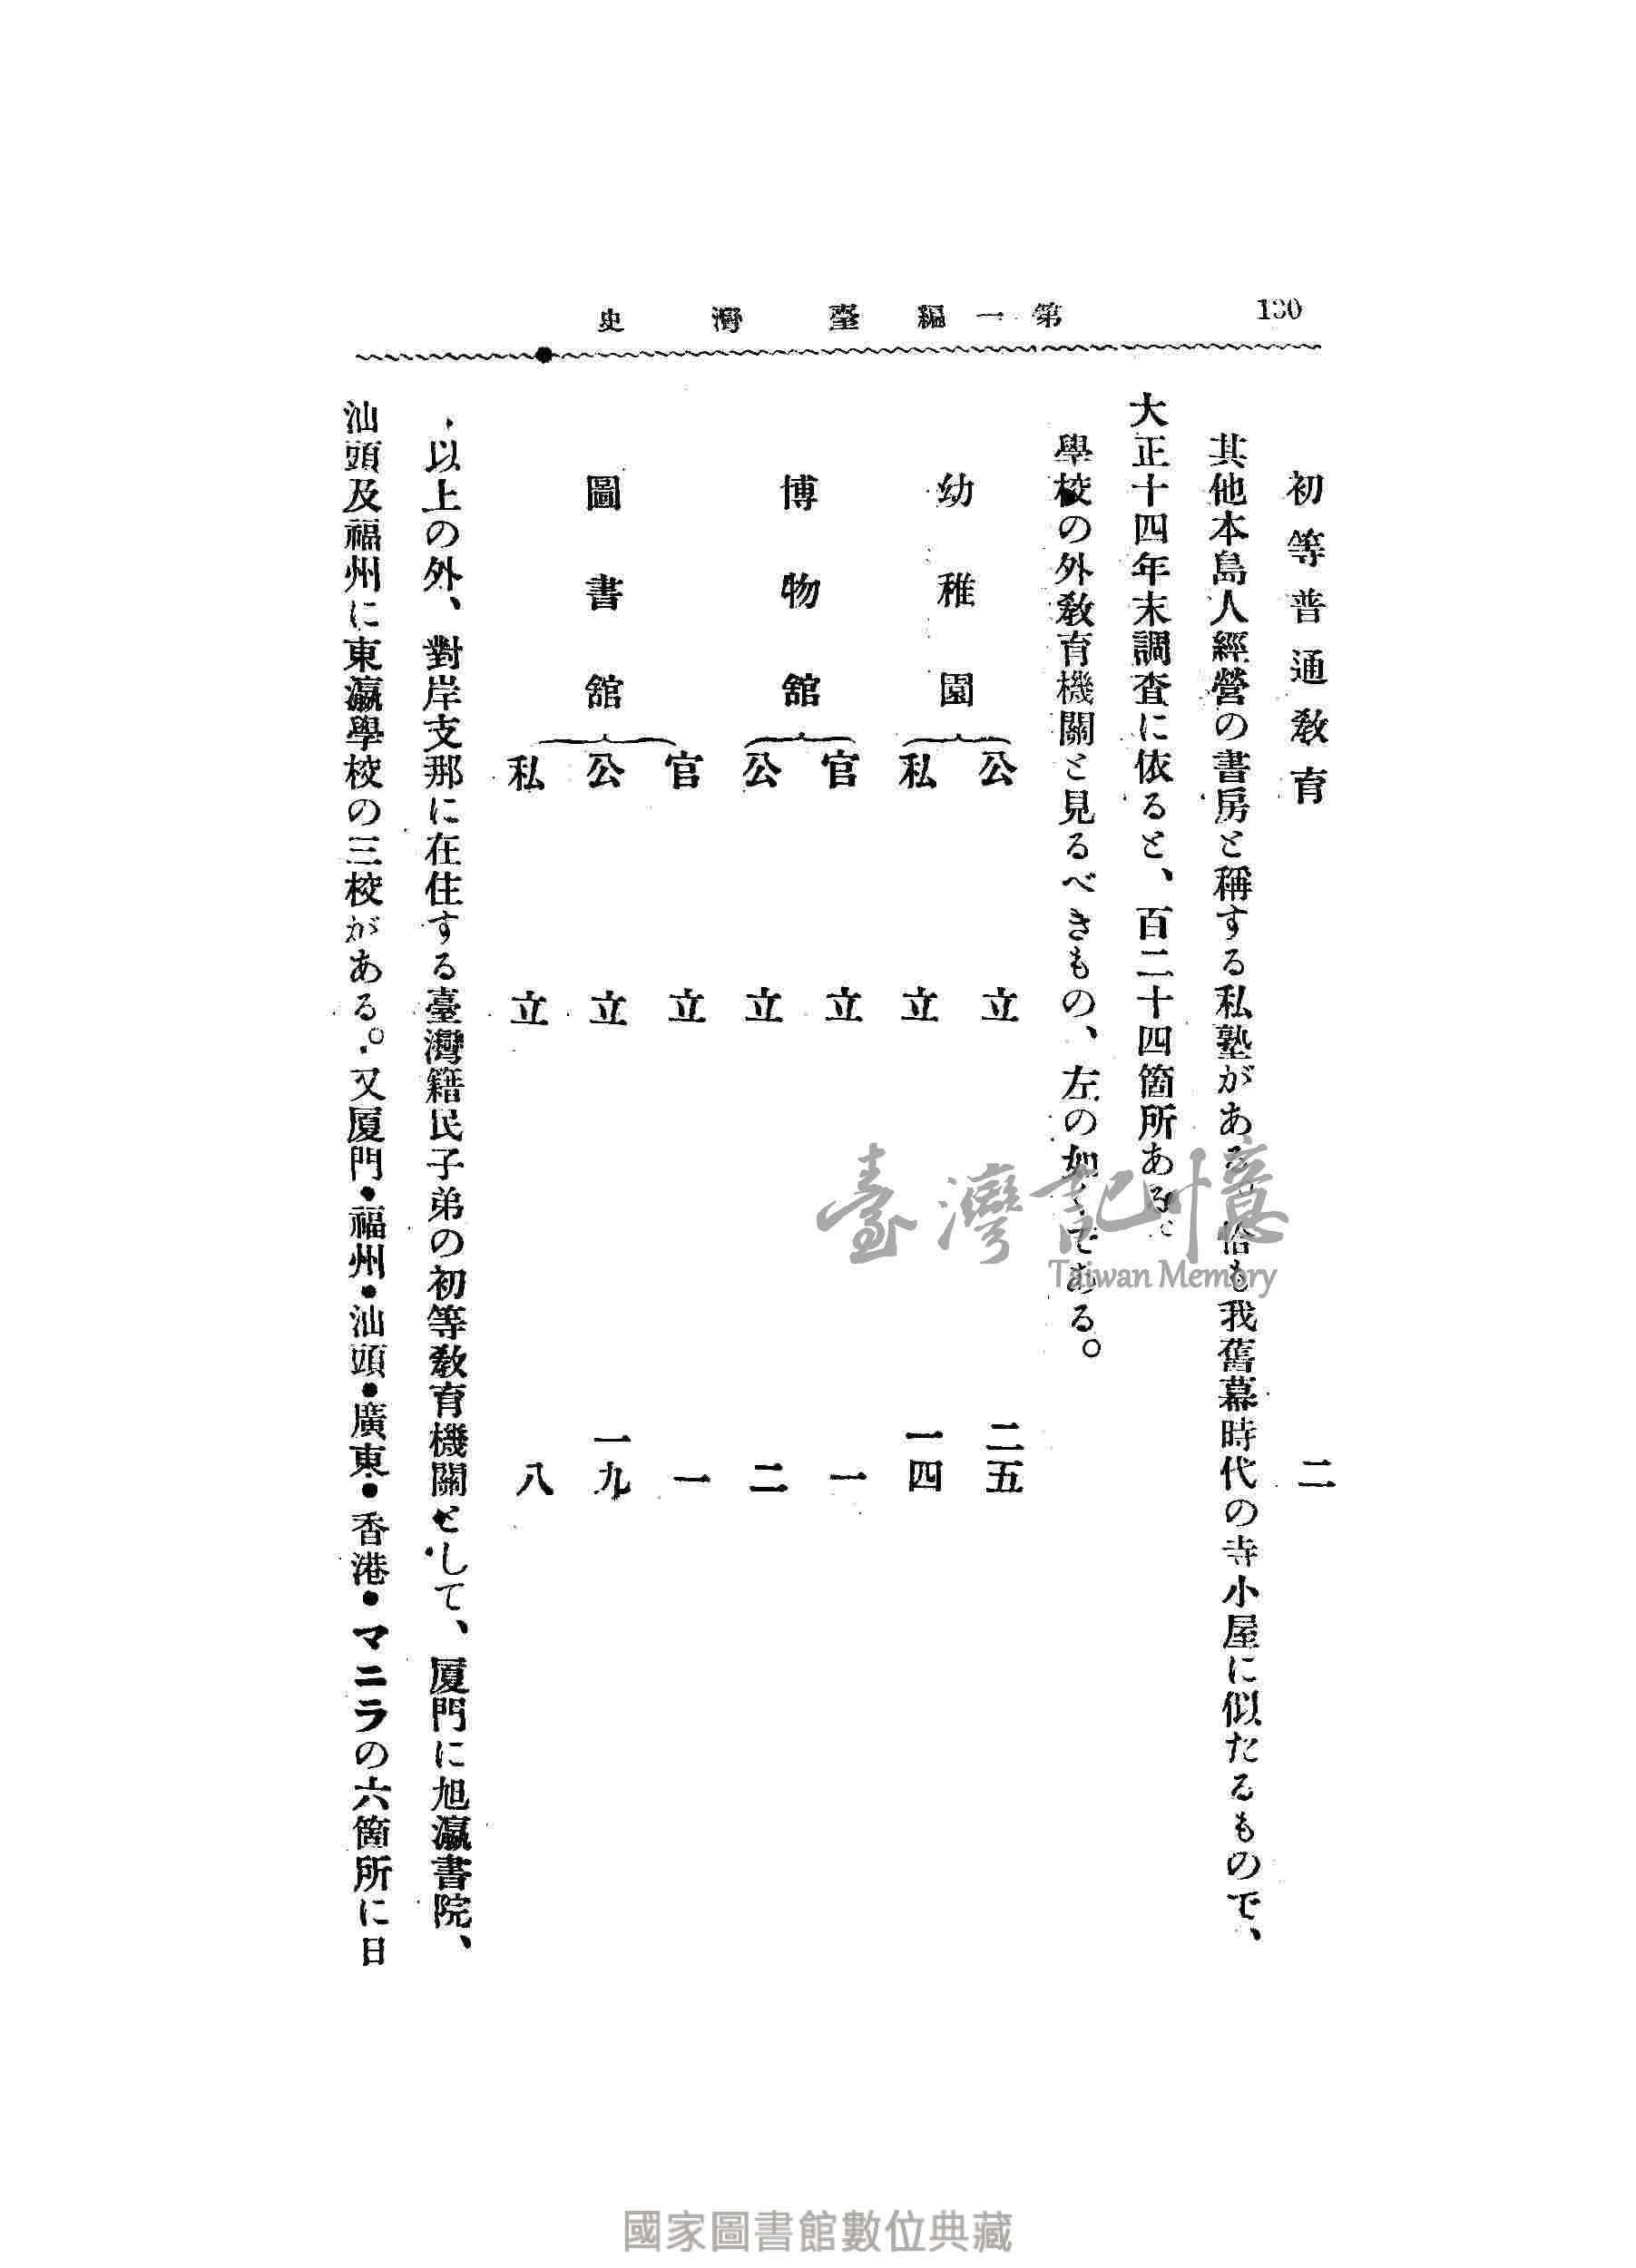 130
第一編 臺灣史
初等普通教育 二
其他本島人經營の書房と稱する私塾がある 恰も我舊幕時代の寺小屋に似たるもので、
大正十四年末調査に依ると、百二十四箇所ある。
學校の外教育機關と見るべきもの、左の如くである。
幼稚園
公立 二五
私立 一四
博物館
官立 一
公立 二
圖書館
官立 一
公立 一九
私立 八
以上の外、對岸支那に在住する臺灣籍民子弟の初等教育機關として、厦門に旭瀛書院、
汕頭及福州に東瀛學校の三校がある。又厦門・福州・汕頭・廣東・香港・マニラの六箇所に日
臺灣記憶
Taiwan Memory
國家圖書館數位典藏